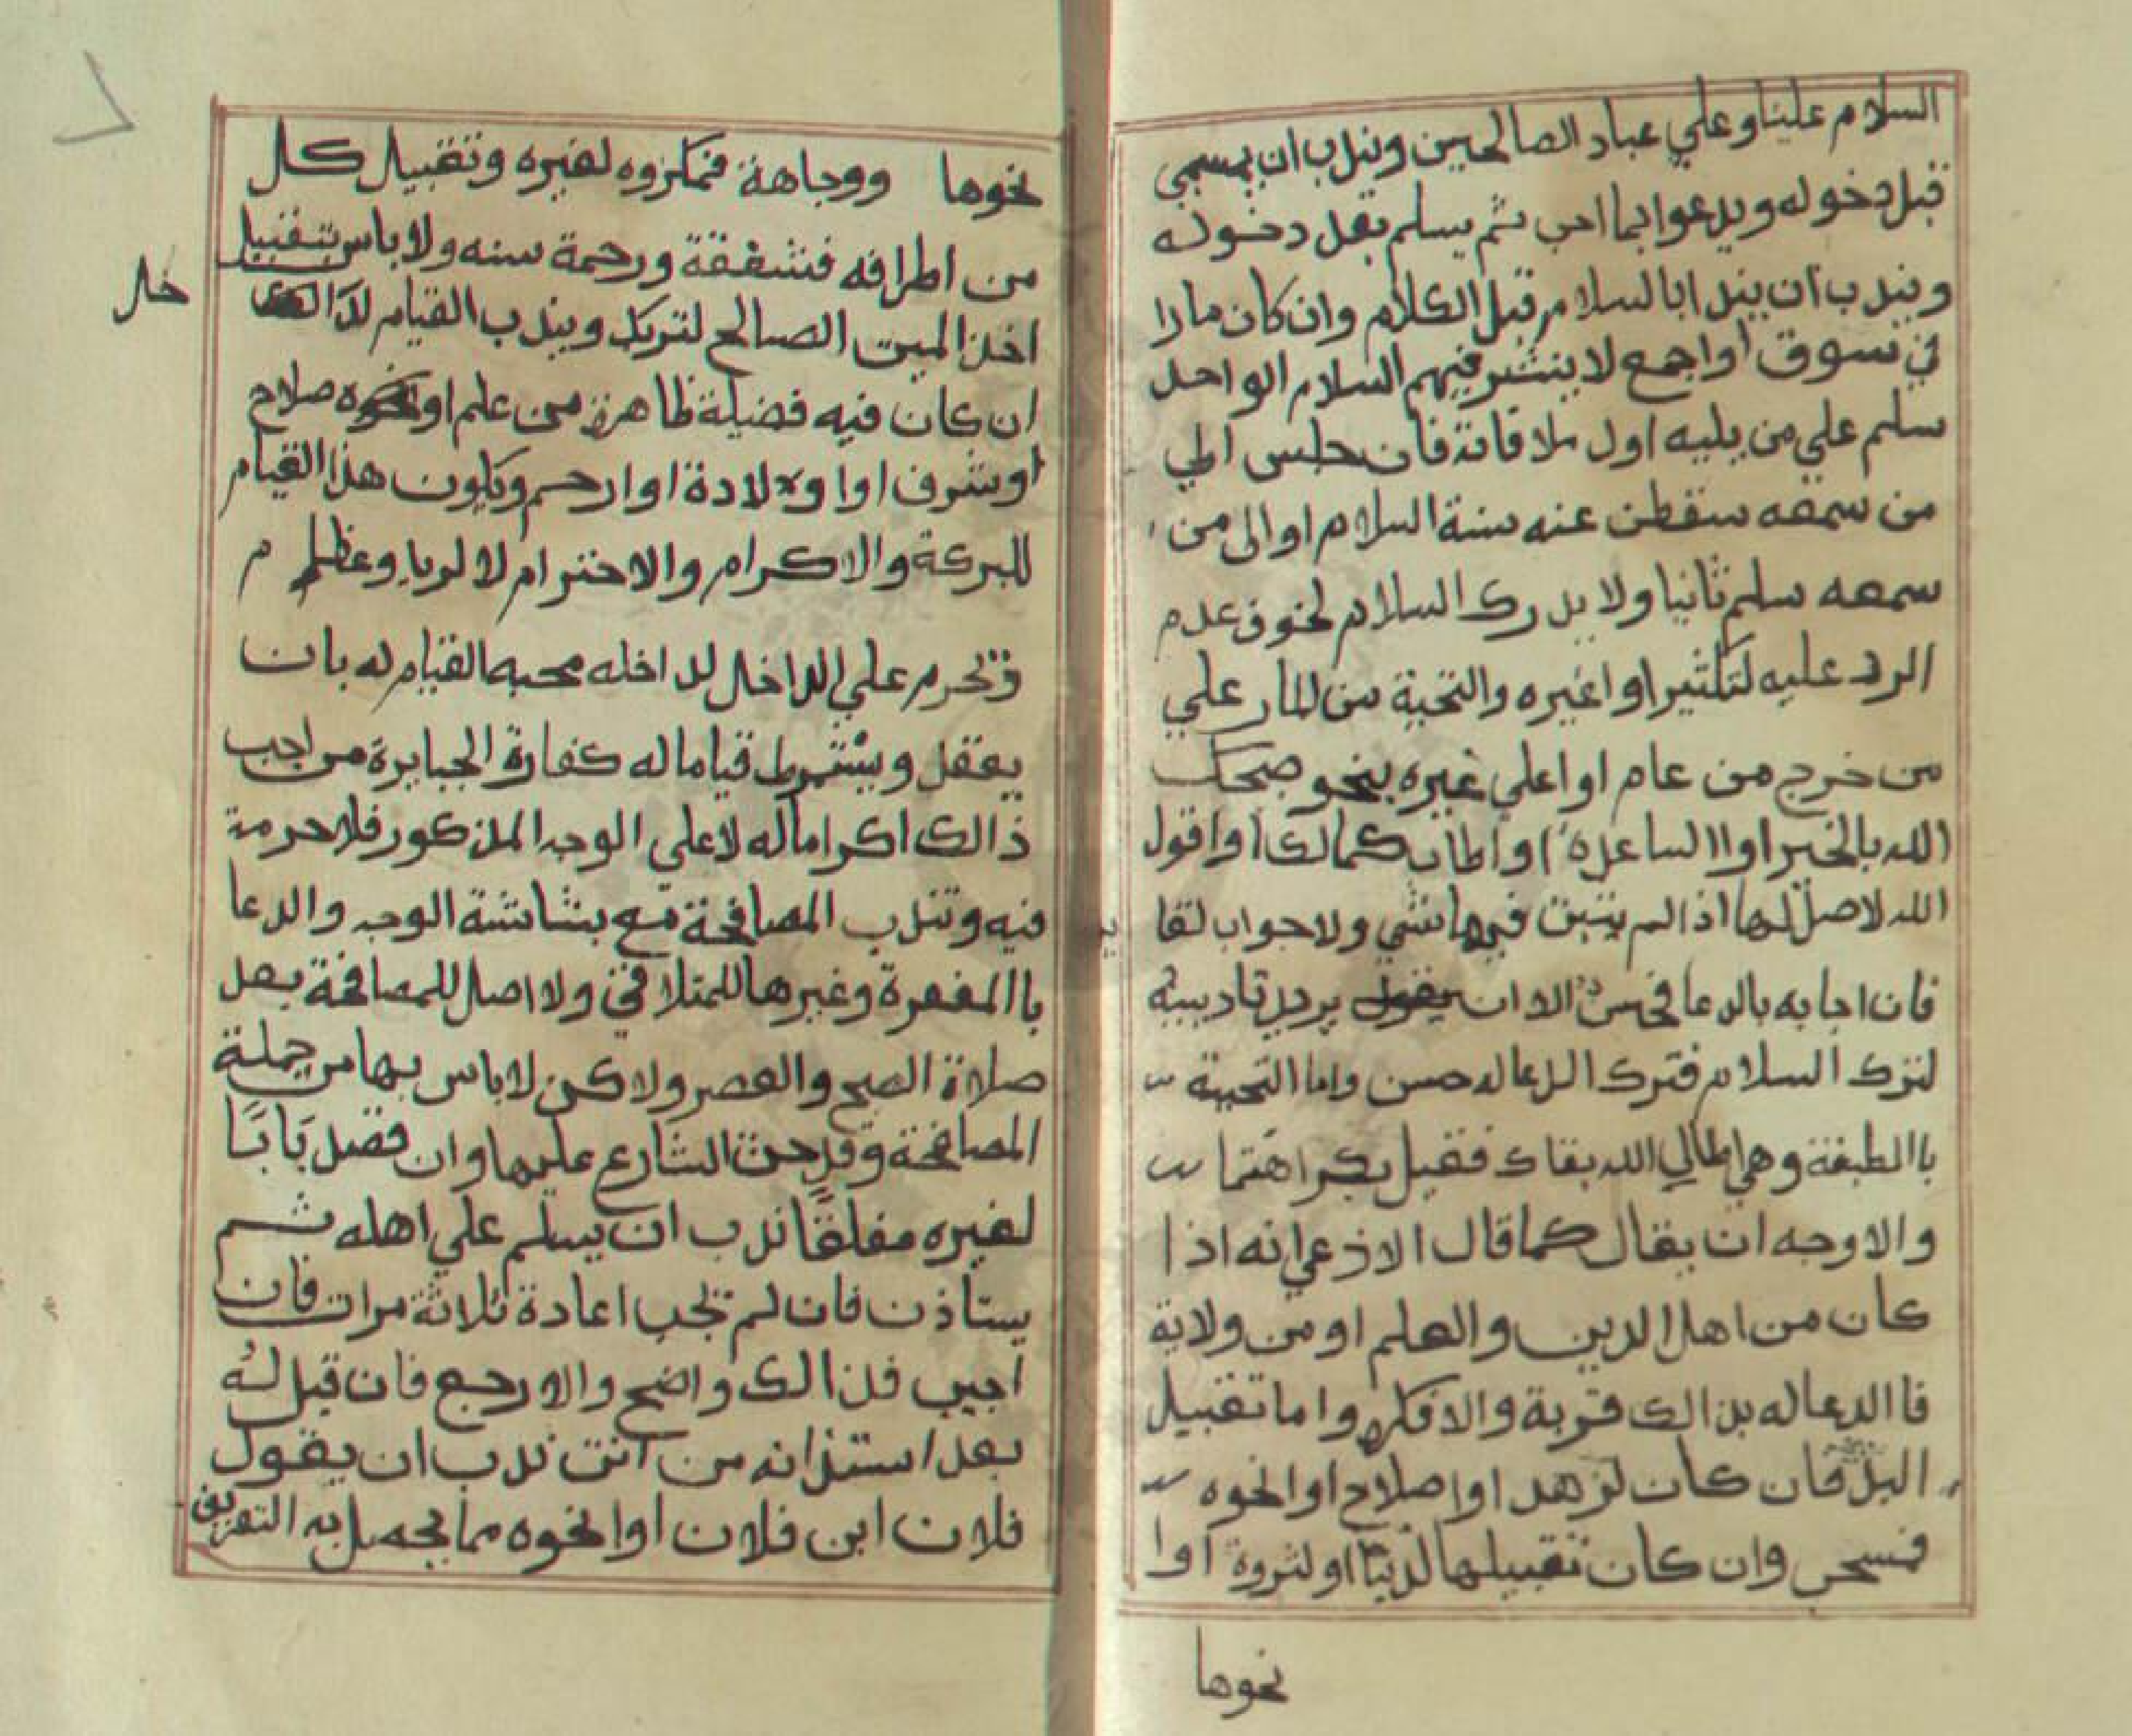 السلام علينا وعلي عباد الصالحين ويندب ان يسمي
قبل دخوله ويدعوا بما احب ثم يسلم بعد دخوله
ويندب ان يبدا بالسلام قبل الكلام وان كان مارا
في سوق او اجمع لا ينتشر فيهم السلام الواحد
سلم علي من يليه اول ملاقاته فان جلس الي
من سمعه سقطت عنه سنة السلام او الى من
سمعه سلم ثانيا ولا يدرك السلام لخوف عدم
الرد عليه لتكثير او اغيره والتحية من المار علي
من خرج من عام او اعلي غيره بنحو صبحك
الله بالخير او الساعده او اطاب كمالك او اقول
الله لا صل لها اذا لم يثبت فيها شي ولا جواب لقا
فان اجابه بالدعا فحسن الا ان يريد تاديبه
لترك السلام فترك الدعا له حسن واما التحية
با الطبغة وهي اطالي الله بقاك فقيل بكراهتما
والاوجه ان يقال كما قال الاذرعي انه اذا
كان من اهل الدين والعلم او من ولاية
فا الدعا له بذالك قربة والا فكره واما تقبيل
اليد فان كان لزهد او اصلاح او انحوه
فسحب وان كان تقبيلها لدنيا او لثروة او ا
نحوها
نحوها ووجاهة فمكروه لغيره وتقبيل كل
من اطرافه فشفقة ورحمة سنه ولا باس بتقبيل
اخذ الميت الصالح لتربك ويندب القيام لدا
خال
ان كان فيه فضيلة ظاهرة من علم او صلاح
او شرف او ا ولادة او ا رحم ويكون هذا القيام
للبركة والاكرام والاحترام لا لريا وعظم م
وتحرم علي الداخال لداخله محبه القيام له بان
يعقل ويشترط قياما له كفارة الجبابرة من اجب
ذالك اكراما له لا علي الوجه المذكور فلا حرمة
فيه وتندب المصافحة مع بشاشة الوجه والدعا
با المغفرة وغيرها للمتلا في ولا اصل للمصافحة بعد
صلاة الصبح والعصر ولا كن لا باس بها من جملة
المصافحة وقد حث الشارع عليها وان قصد بابا
لغيره مغلقا ندب ان يسلم علي اهله ثم
يستاذن فان لم تجب اعادة ثلاثة مرات فان
اجيب فذالك واضح والا رجع فان قيل له
بعد استذانه من انت ندب ان يقول
فلان ابن فلان او انحوه مما يحصل به التعريف